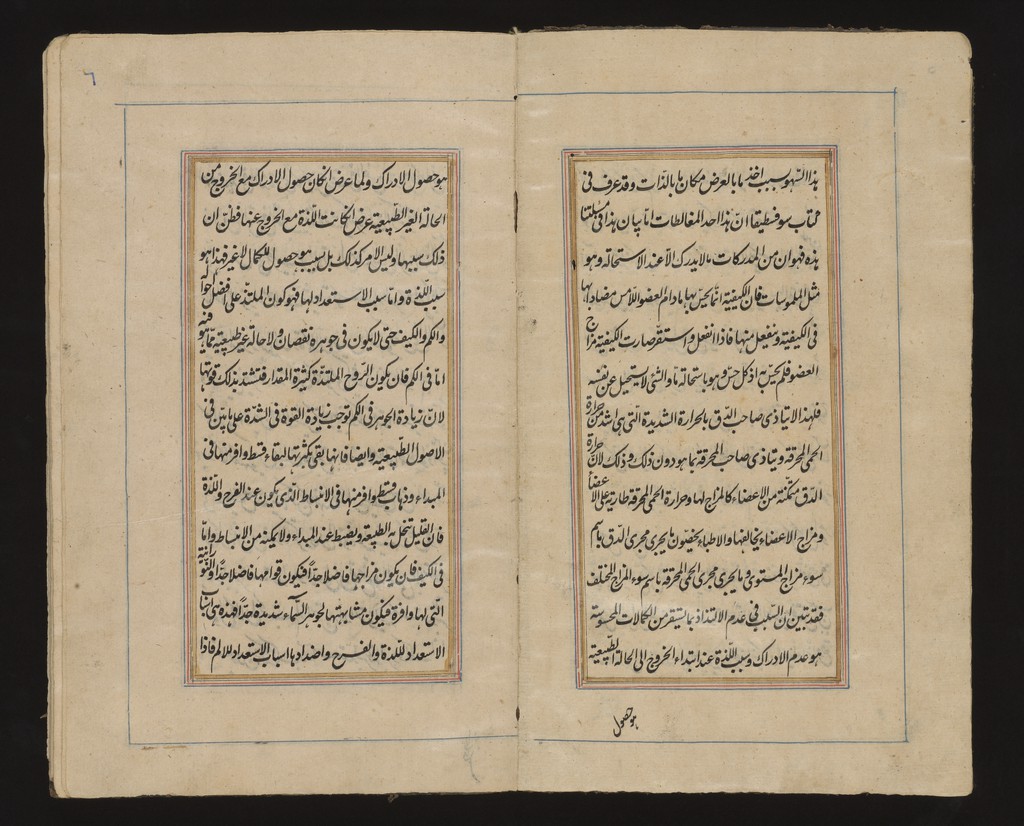 هذا السهو بسبب اخذ ما بالعرض مكان ما بالذات وقد عرف في
كتاب سوفسطيقا ان هذا احد المغالطات اما بيان هذا في مسئلتنا
هذه فهو ان من المدركات ما لا يدرك الا عند الاستحالة وهو
مثل الملموسات فان الكيفية انما يحس بها ما دام العضو اللامس مضادا لها
في الكيفية وينفعل منها فاذا انفعل واستقر صارت الكيفية مزاج
العضو فلم يحس به اذ كل حس وهو باستحالة ما والشئ لا يستحيل عن نفسه
فلهذا لا يتاذى صاحب الدق بالحرارة الشديدة التي هي اشد من حرارة
الحمى المحرقة ويتاذى صاحب المحرقة بما هو دون ذلك وذلك لان حرارة
الدق متمكنة من الاعضاء كالمزاج لها وحرارة الحمى المحرقة طارية على الاعضا
ومزاج الاعضاء يخالفها والاطباء يخصون ما يجرى مجرى الدق باسم
سوء مزاج المستوى وما يجرى مجرى الحمى المحرقة باسم سوء المزاج المختلف
فقد تبين ان السبب في عدم الالتذاذ بما يستقر من الكمالات المحسوسة
هو عدم الادراك وسبب اللذة عند ابتداء الخروج الى الحالة الطبيعية
هو حصول
هو حصول الادراك ولما عرض ان كان حصول الادراك مع الخروج من
الحالة الغير الطبيعية عرض ان كانت اللذة مع الخروج عنها فظن ان
ذلك سببها وليس الامر كذلك بل سبب هو حصول للكمال لا غير فهذا هو
سبب اللذة واما سبب الاستعداد لها فهو كون الملتذ على افضل احواله
والكم والكيف حتى لا يكون في جوهره نقصان ولا حالة غير طبيعية مما هو فيه
اما في الكم فان يكون الروح الملتذة كثيرة المقدار فتشتد بذلك قوتها
لان زيادة الجوهر في الكم توجب زيادة القوة في الشدة على ما بين في
الاصول الطبيعية وايضا فانها بقى بكثرتها لبقاء قسط وافر منها في
المبداء وذهاب قسط وافر منها في الانبساط الذى يكون عند الفرح واللذة
فان القليل تبخل به الطبيعة ويضبط عند المبداء ولا يمكنه من الانبساط واما
في الكيف فان يكون مزاجها فاضلا جدا فيكون قوامها فاضلا جدا والنورانية
التي لها وافرة فيكون مشابهتها لجوهر السماء شديدة جدا فهذه هى اسباب
الاستعداد للذة والفرح واضدادها اسباب الاستعداد للالم فاذا